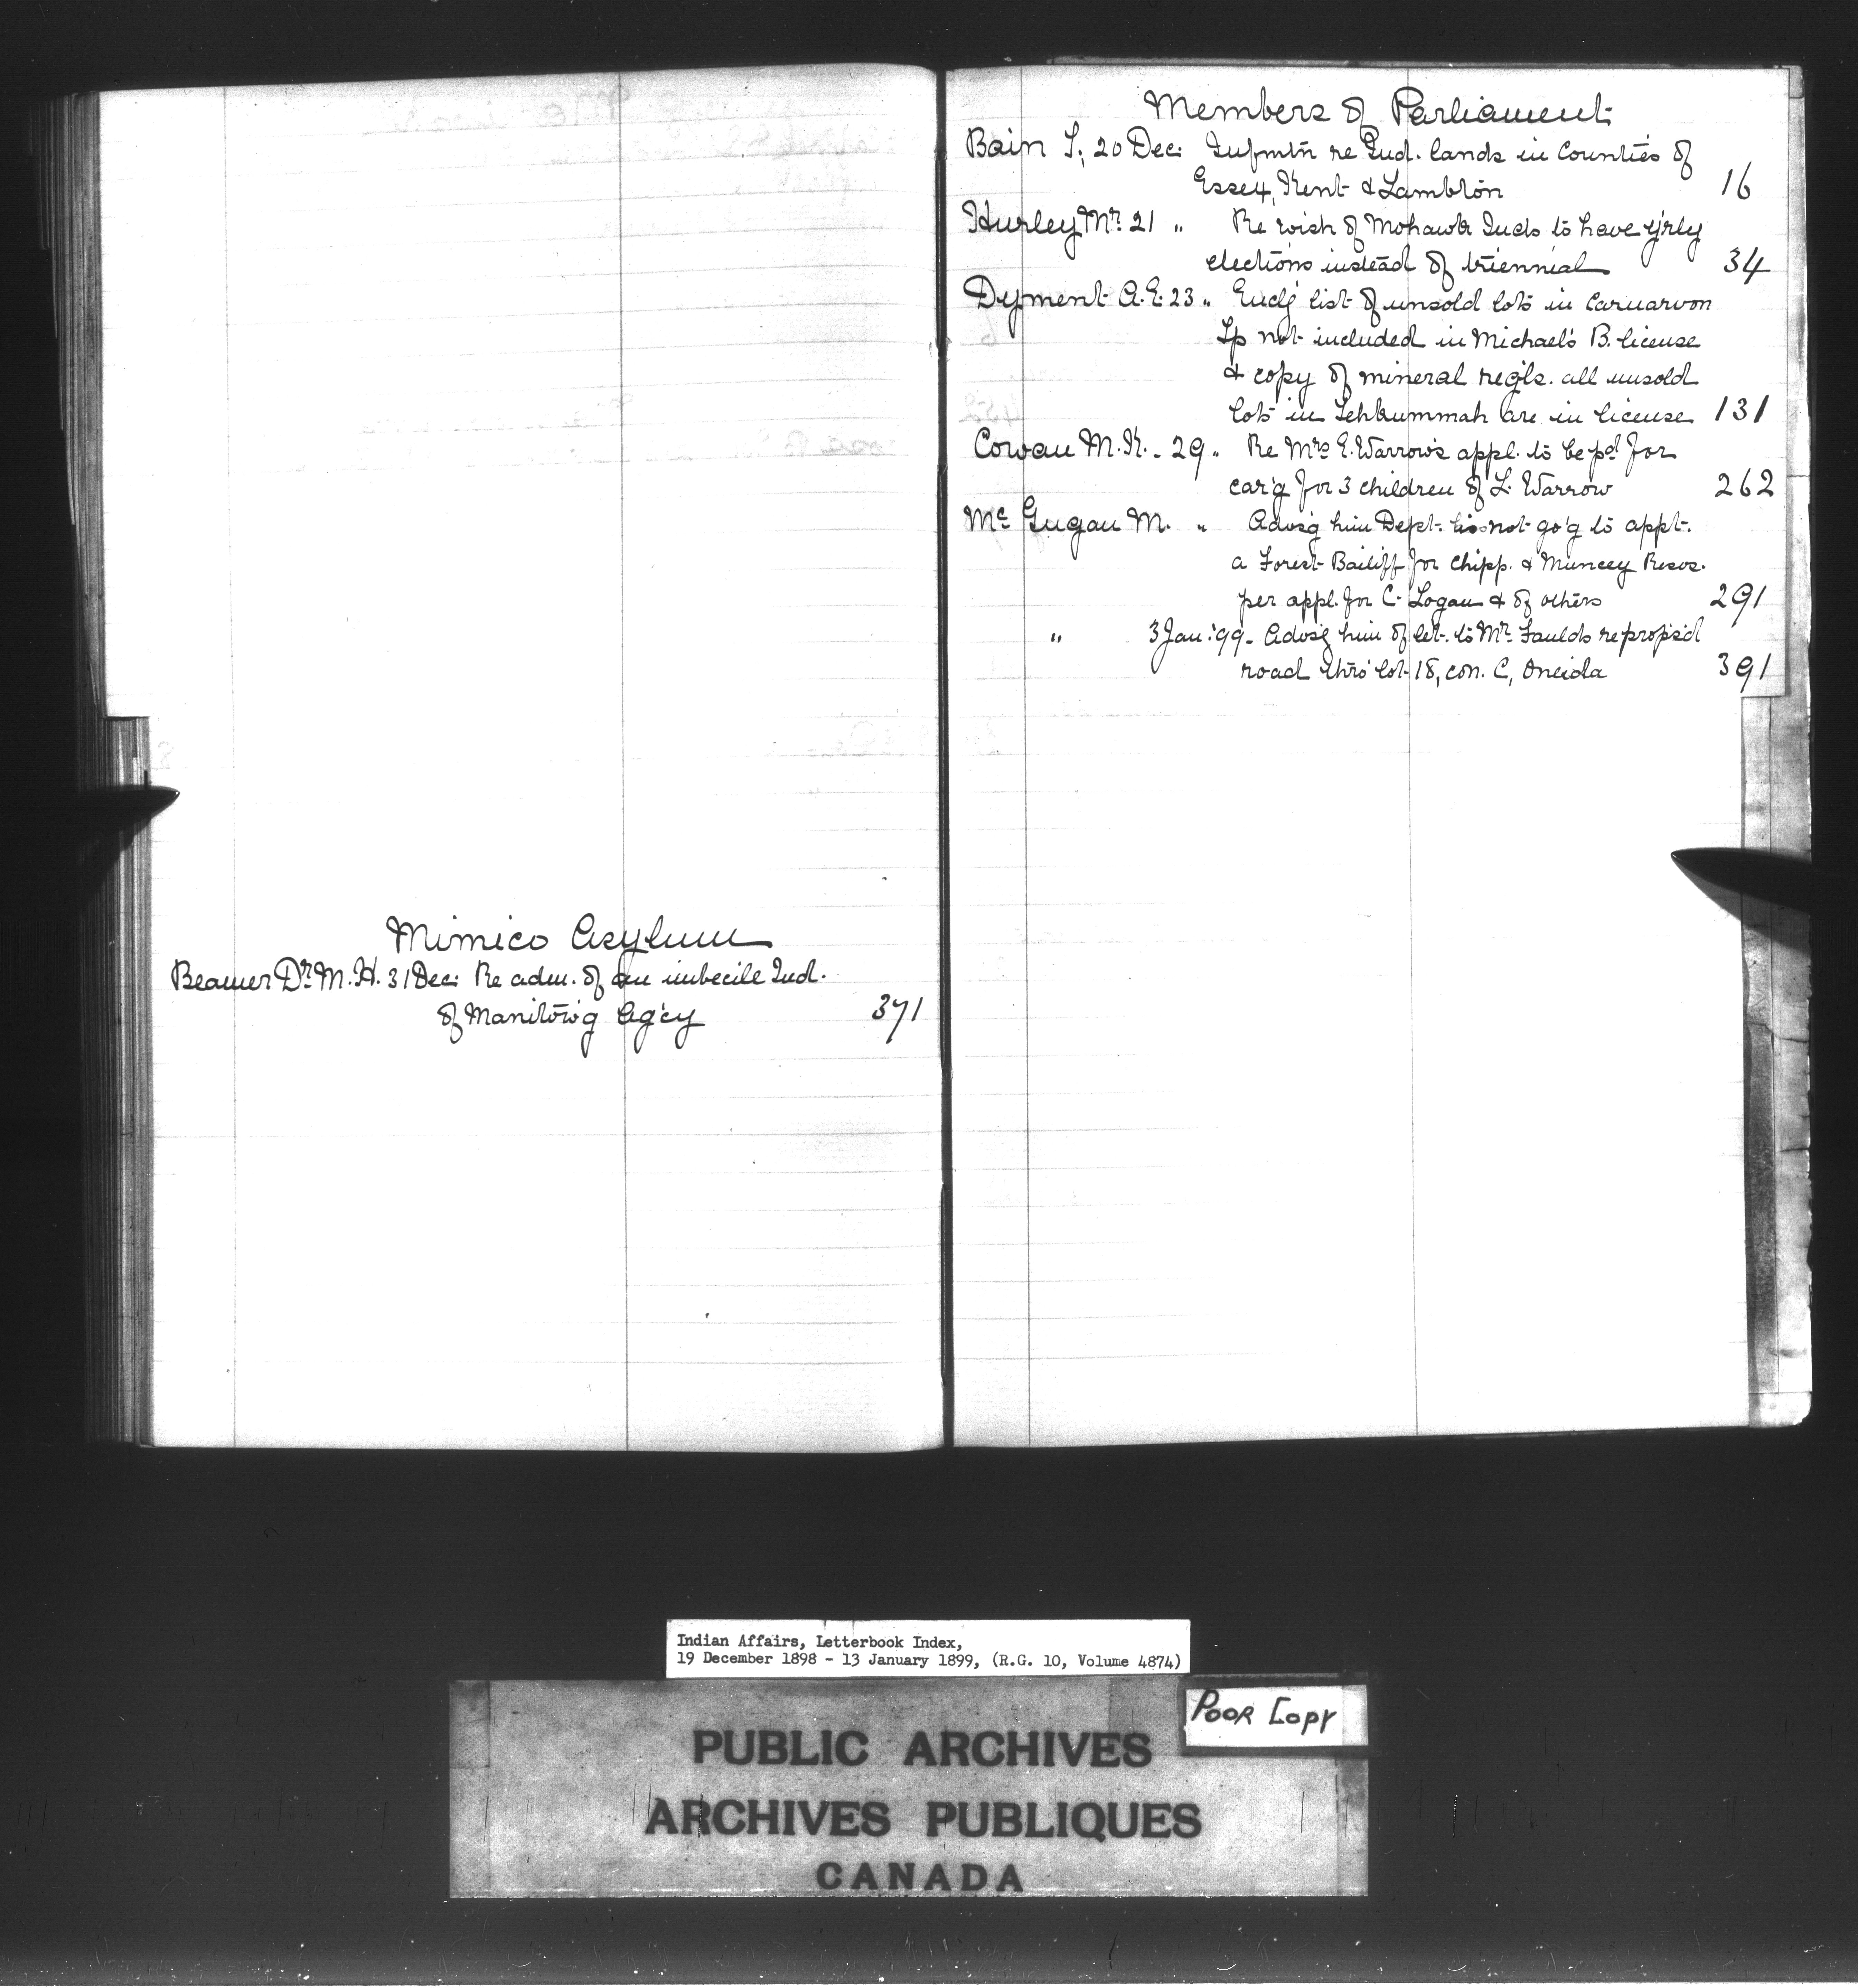 Mimico Asylum
Beamer Dr. M. H. 31 Dec: Re adm. of an imbecile Ind.
of Manitow'g Ag'cy 371
Members of Parliament
Bain T., 20 Dec: Infmtn re Ind. lands in Counties of
Essex, Kent & Lambton 16
Hurley Mr. 21 " Re wish of Mohawk Inds to have y'rly
elections instead of triennial 34
Dyment A. E. 23 " Encl'g list of unsold lots in Carnarvon
Tp not included in Michael's B. license
& copy of mineral reg'ls. all unsold
lots in Tehkummah are in license 131
Cowan M. K. - 29 " Re Mrs E. Warrow's appl. to be pd for
car'g for 3 children of L. Warrow 262
Mc Gugan M. " Advis'g him Dept. is not go'g to appt.
a Forest Bailiff for Chipp. & Muncey Resvs.
per appl. for C. Logan & of others 291
" 3 Jan: '99 - Advis'g him of let. to Mr. Faulds re propos'd
road thro' lot 18, con. C, Oneida 391
Indian Affairs, Letterbook Index,
19 December 1898 - 13 January 1899, (R.G. 10, Volume 4874)
POOR COPY
PUBLIC ARCHIVES
ARCHIVES PUBLIQUES
CANADA